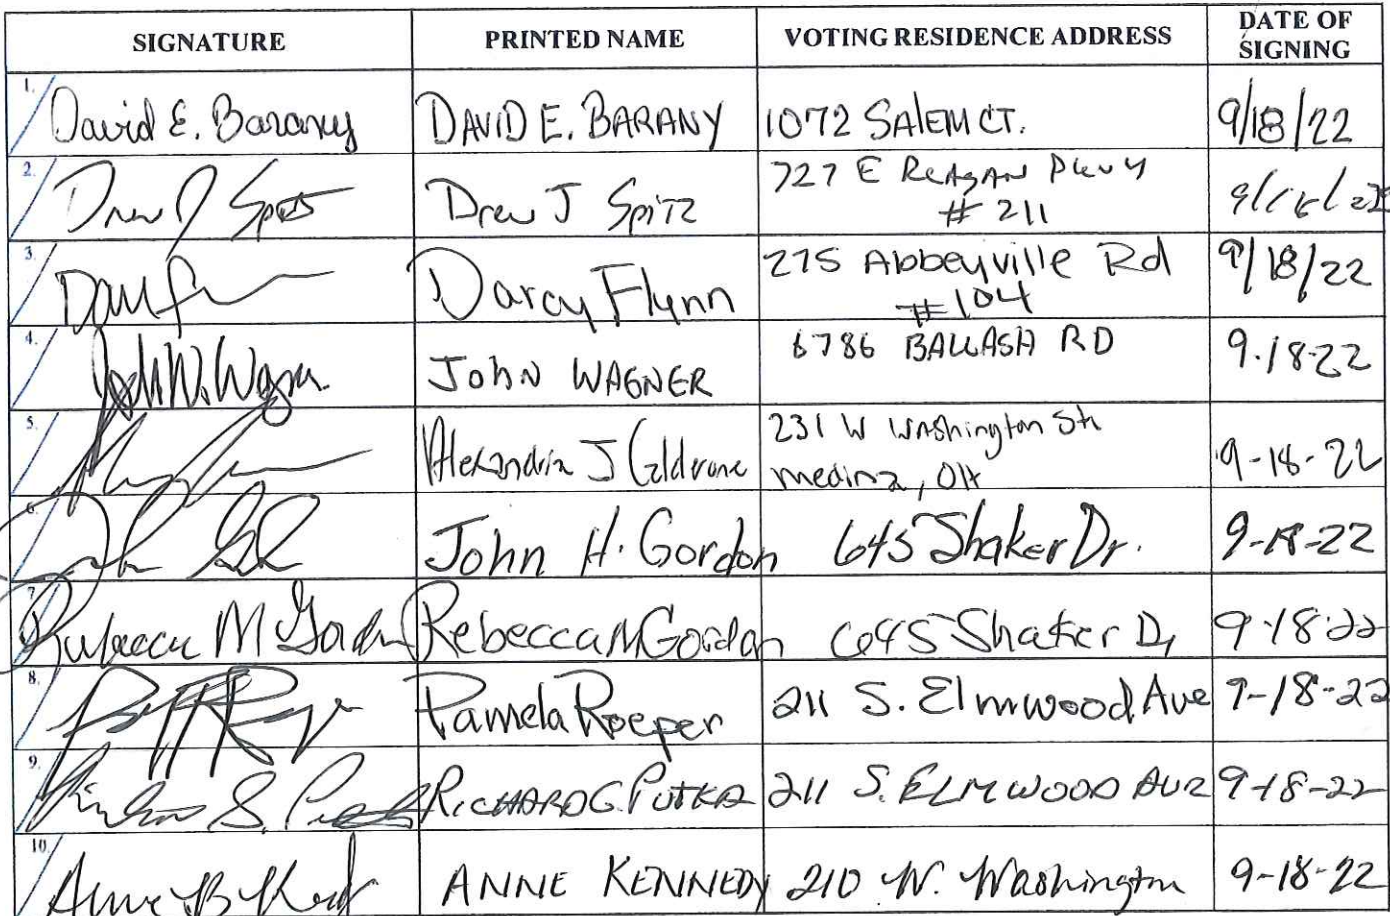 SIGNATURE PRINTED NAME VOTING RESIDENCE ADDRESS DATE OF SIGNING
1. David E. Barany DAVID E. BARANY 1072 SALEM CT. 9/18/22
2. Drew J Spitz Drew J Spitz 727 E REAGAN PKWY
# 211
3. Darcy Flynn 275 Abbeyville Rd 9/18/22
#104
4. John W. Wagner JOHN WAGNER 6786 BALLASH RD 9.18.22
5. Alexandria J 231 W Washington St. 9-18-22
medina, OH
6. John H. Gordon 645 Shaker Dr. 9-18-22
7. Rebecca M Gordon Rebecca M Gordon 645 Shaker Dr 9-18-22
8. Pamela Roeper 211 S. Elmwood Ave 9-18-22
9. RICHARD G. PUTKA 211 S. ELMWOOD AVE 9-18-22
10. Anne B. Kennedy ANNE KENNEDY 210 W. Washington 9-18-22